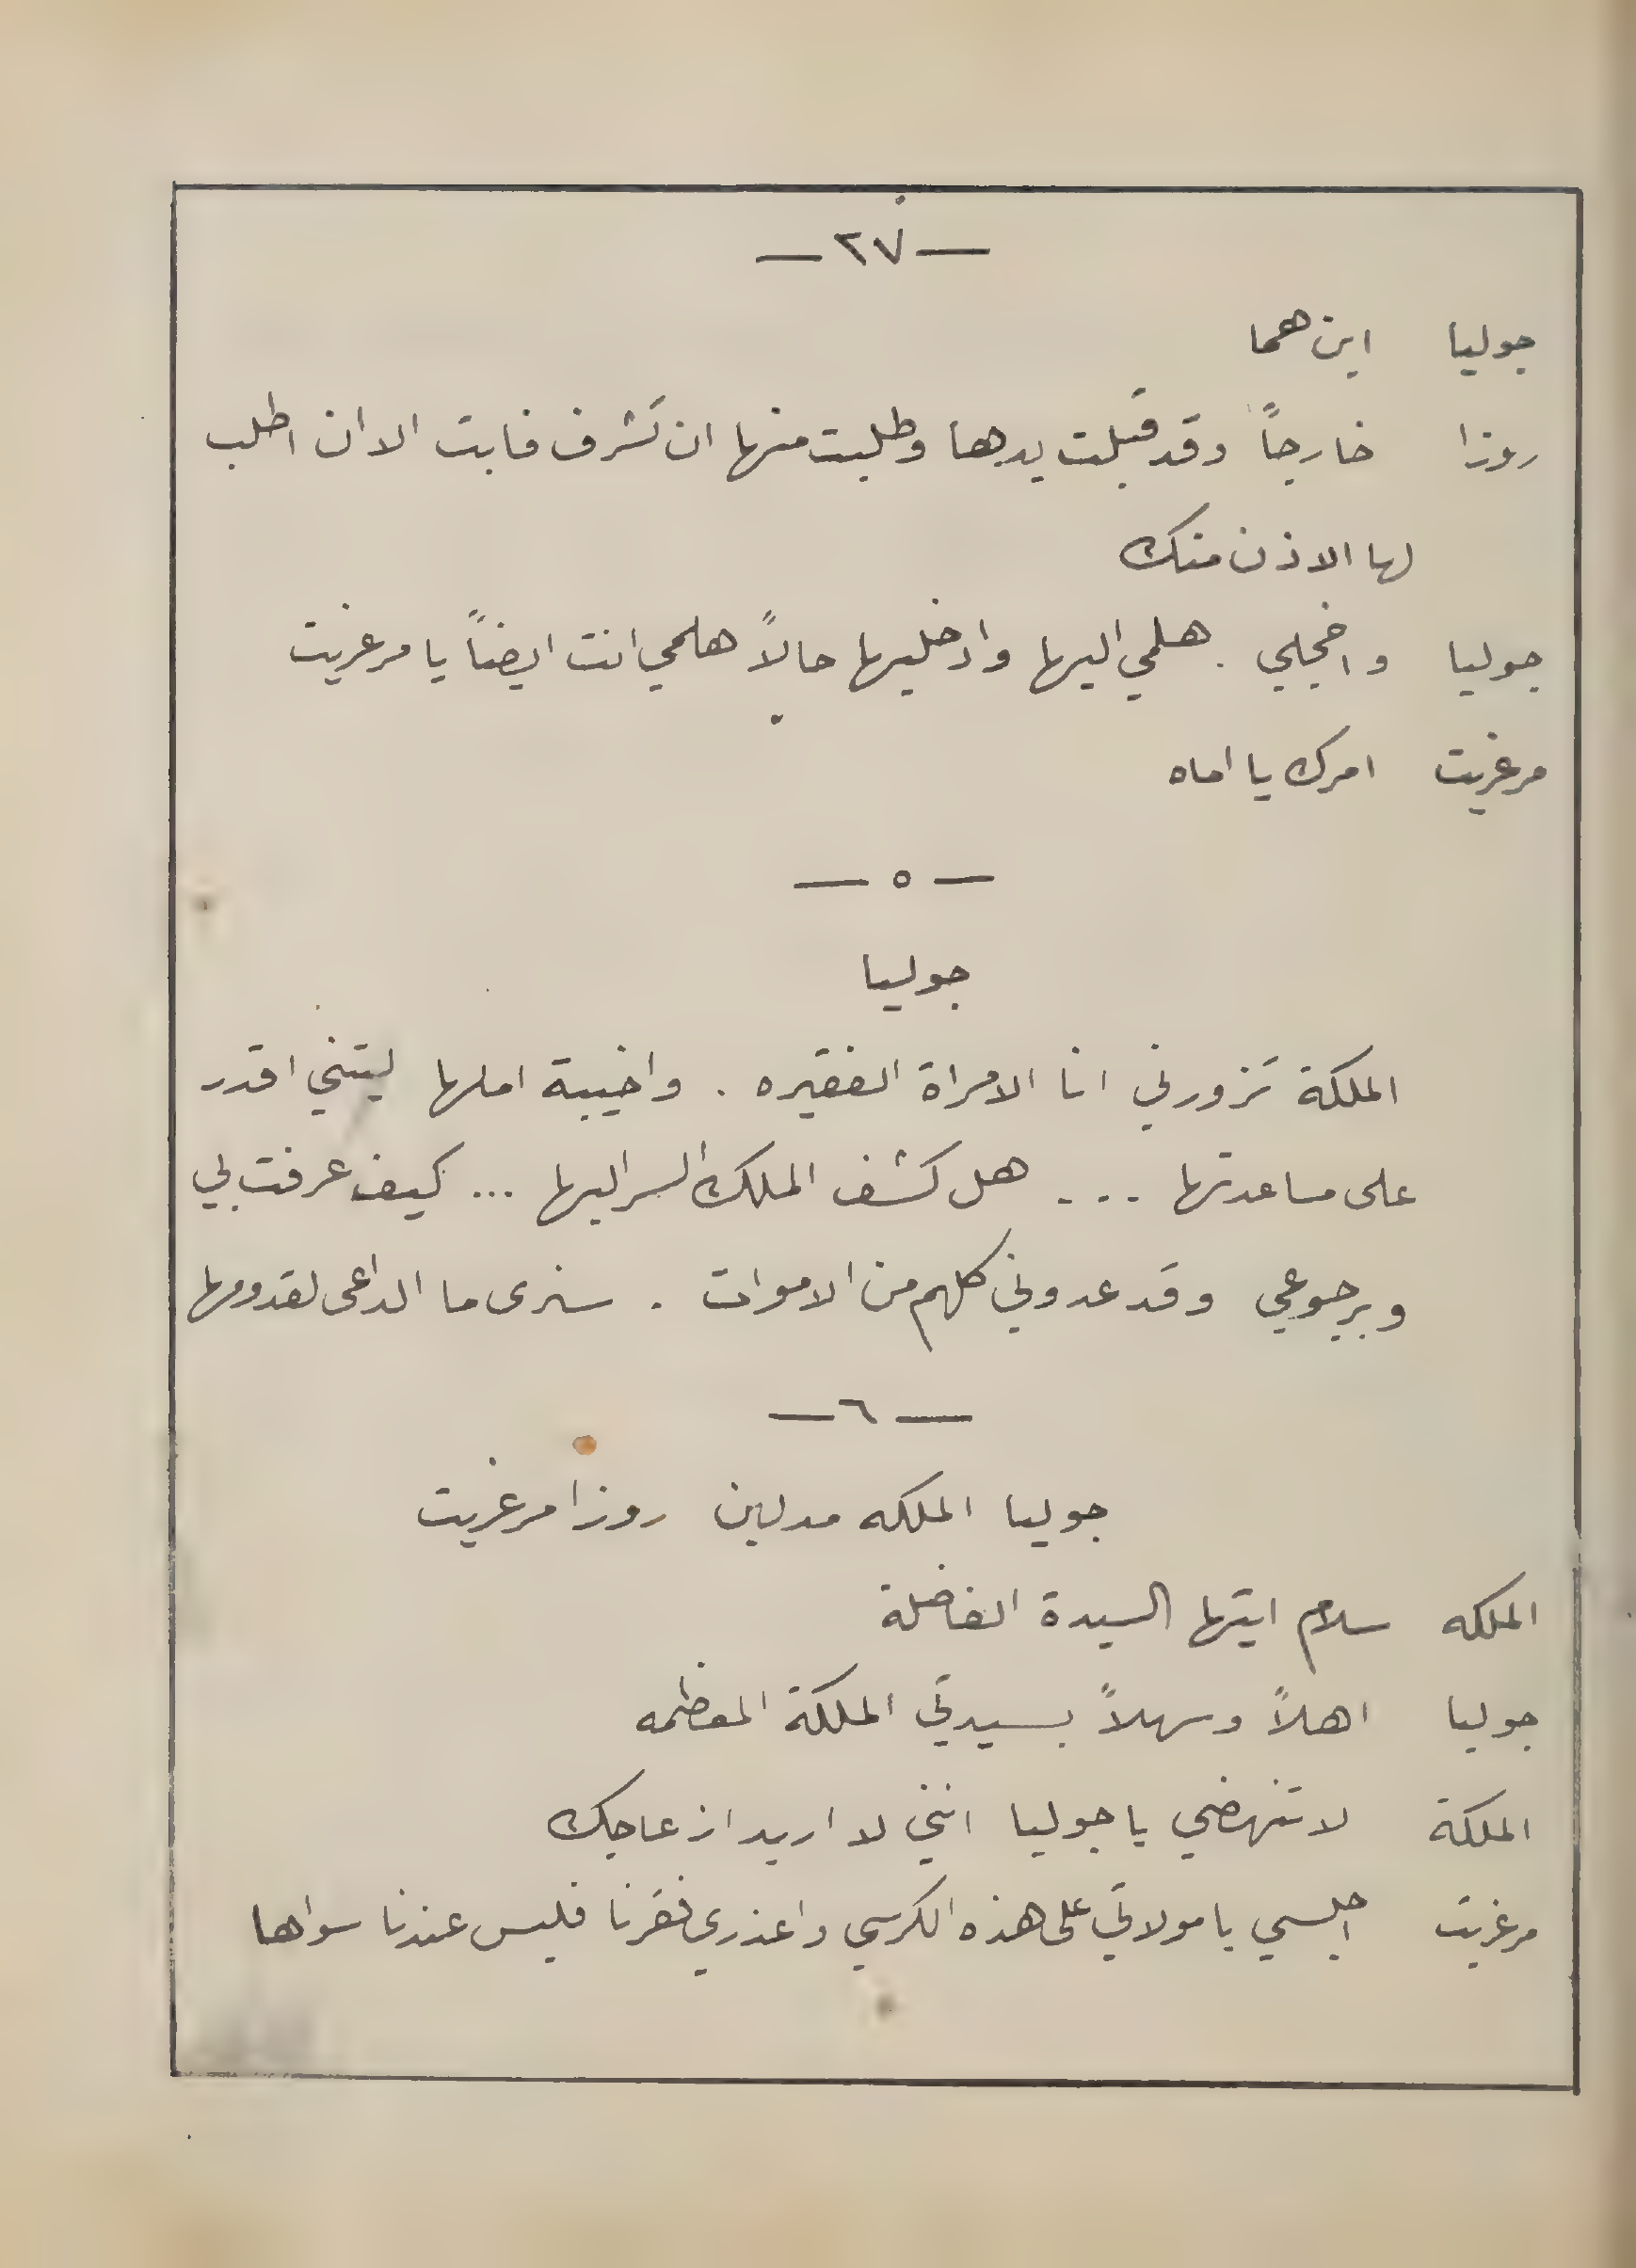 — ٢٧ —
جوليا اين هما
روزا خارجاً وقد قبلت يدها وطلبت منها ان تشرف فابت الا ان اطلب
لها الاذن منك
جوليا واخجلي . هلمي اليها وادخليها حالاً هلمي انت ايضاً يا مرغريت
مرغريت امرك يا اماه
— ٥ —
جوليا
الملكة تزورني انا الامراة الفقيره . واخيبة املها ليتني اقدر
على مساعدتها ... هل كشف الملك السر اليها ... كيف عرفت بي
وبرجوعي وقد عدوني كلهم من الاموات . سنرى ما الداعى لقدومها
— ٦ —
جوليا الملكه مدلين روزا مرغريت
الملكه سلام ايتها السيدة الفاضلة
جوليا اهلاً وسهلاً بسيدتي الملكة المعظمه
الملكة لا تنهضي يا جوليا انني لا اريد ازعاجك
مرغريت اجلسي يا مولاتي على هذه الكرسي واعذري فقرنا فليس عندنا سواها